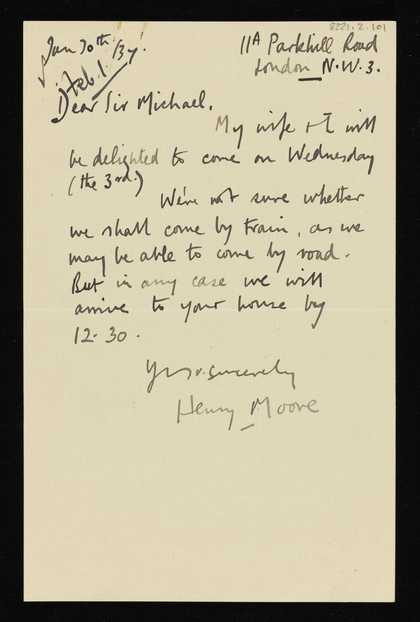 8221.2.101
Jan 30th '37.
11A Parkhill Road
London N.W.3.
Feb. 1.
Dear Sir Michael,
My wife & I will
be delighted to come on Wednesday
(the 3rd.)
We're not sure whether
we shall come by train, as we
may be able to come by road.
But in any case we will
arrive to your house by
12-30.
Yrs sincerely
Henry Moore